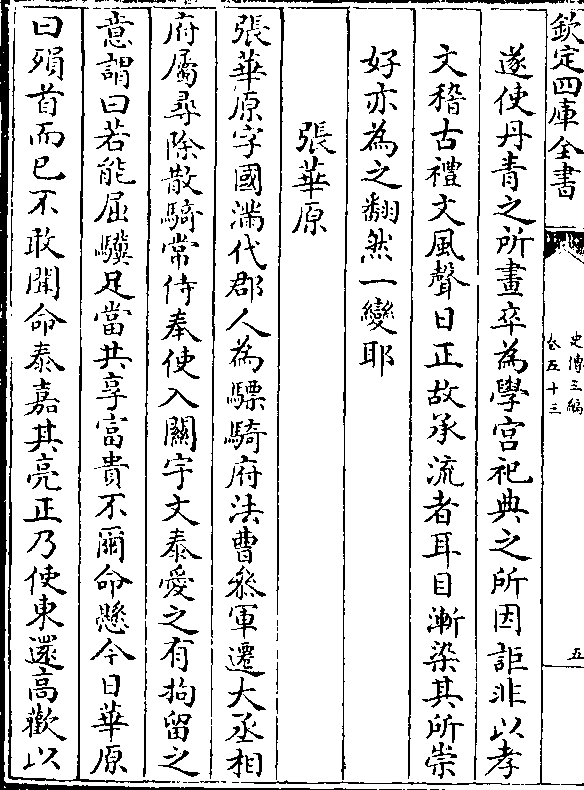 欽定四庫全書
史傳三編
卷五十三
五
遂使丹青之所畫卒為學宫祀典之所因詎非以孝
文稽古禮文風聲日正故承流者耳目漸染其所崇
好亦為之翻然一變耶
張華原
張華原字國滿代郡人為驃騎府法曹叅軍遷大丞相
府屬尋除散騎常侍奉使入關宇文泰愛之有拘留之
意謂曰若能屈驥足當共享富貴不爾命懸今日華原
曰殞首而已不敢聞命泰嘉其亮正乃使東還高歡以